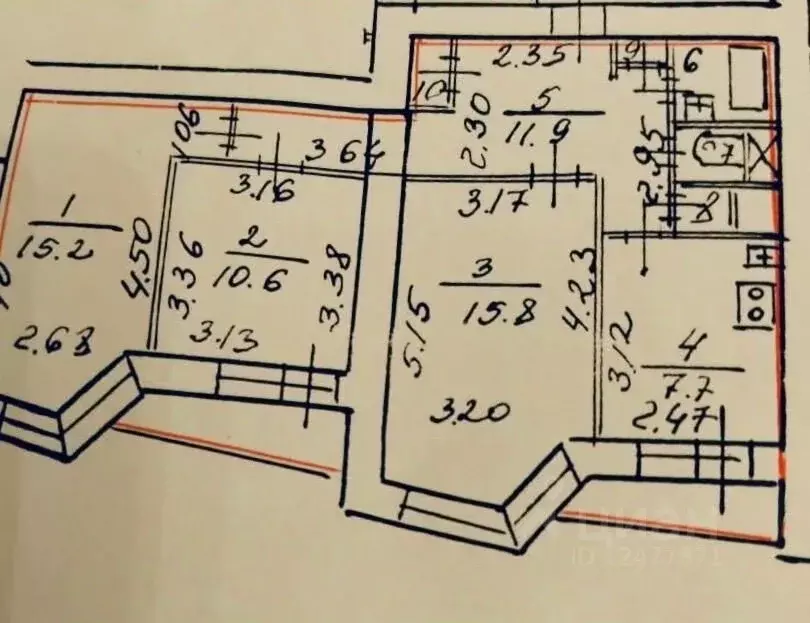 2.35
9
6
10
5
11.9
2.30
2.95
7
8
1.06
3.64
3.16
3.17
1
15.2
4.50
2
10.6
3.36
3.38
3.13
2.63
3
15.8
5.15
4.23
3.20
3.12
4
7.7
2.47
ЦИАН